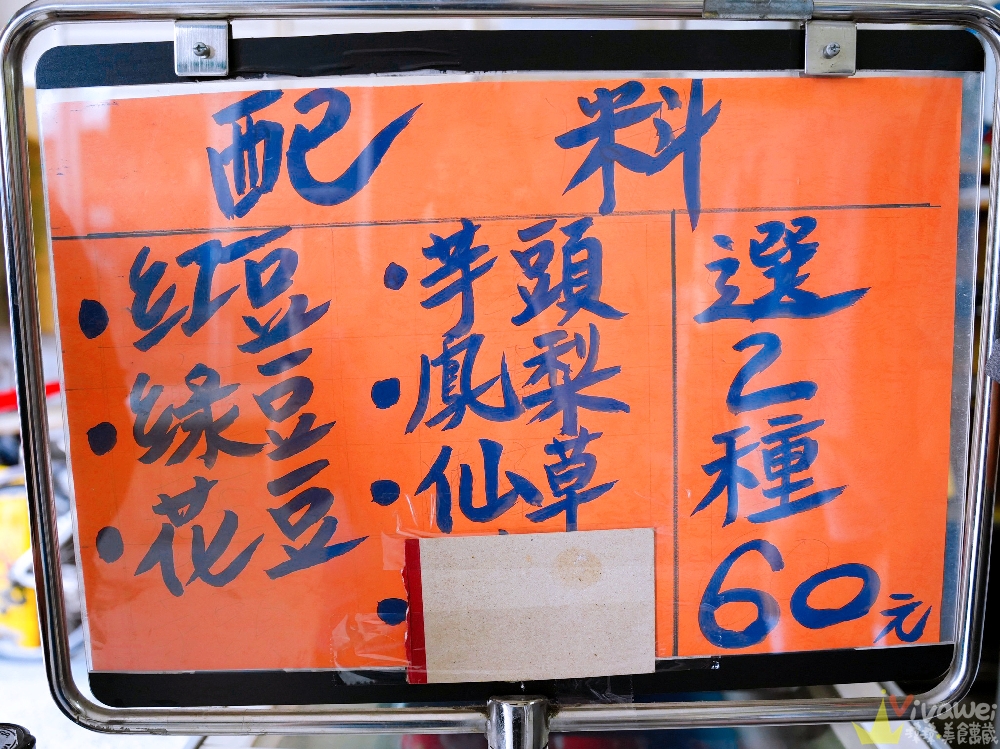 配料
・紅豆
・綠豆
・花豆
・芋頭
・鳳梨
・仙草
選2種60元
Vivawei
美食萬歲